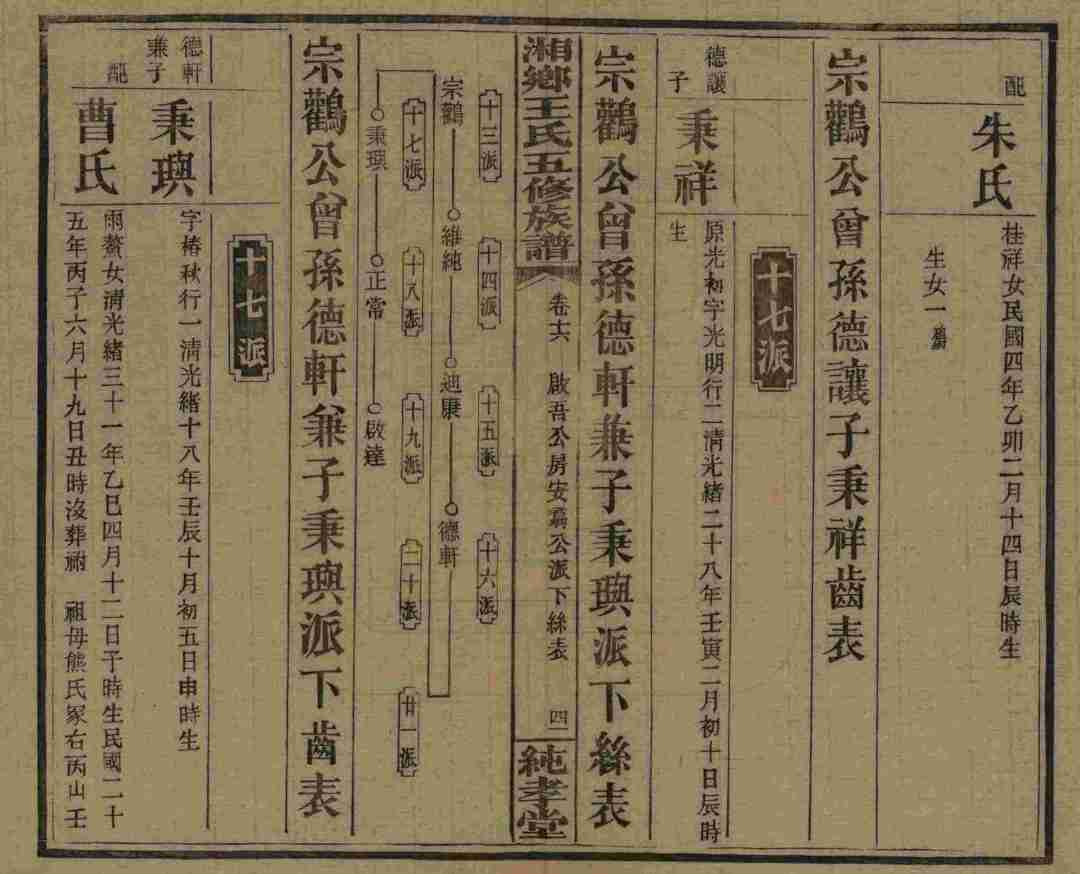 配
朱氏
桂祥女民國四年乙卯二月十四日辰時生
生女一
宗鸛公曾孫德讓子秉祥齒表
十七派
德讓
子
秉祥
原光初字光明行二清光緒二十八年壬寅二月初十日辰時
生
宗鸛公曾孫德軒兼子秉璵派下絲表
湘鄉王氏五修族譜
卷十六
啟吾公房安為公派下絲表
四
純孝堂
十三派
十四派
十五派
十六派
宗鸛
維純
廸康
德軒
十七派
十八派
十九派
二十派
廿一派
秉璵
正常
啟達
宗鸛公曾孫德軒兼子秉璵派下齒表
十七派
德軒
兼子
秉璵
字椿秋行一清光緒十八年壬辰十月初五日申時生
配
曹氏
雨蓂女清光緒三十一年乙巳四月十二日子時生民國二十
五年丙子六月十九日丑時沒葬祔 祖母熊氏冢右丙山壬